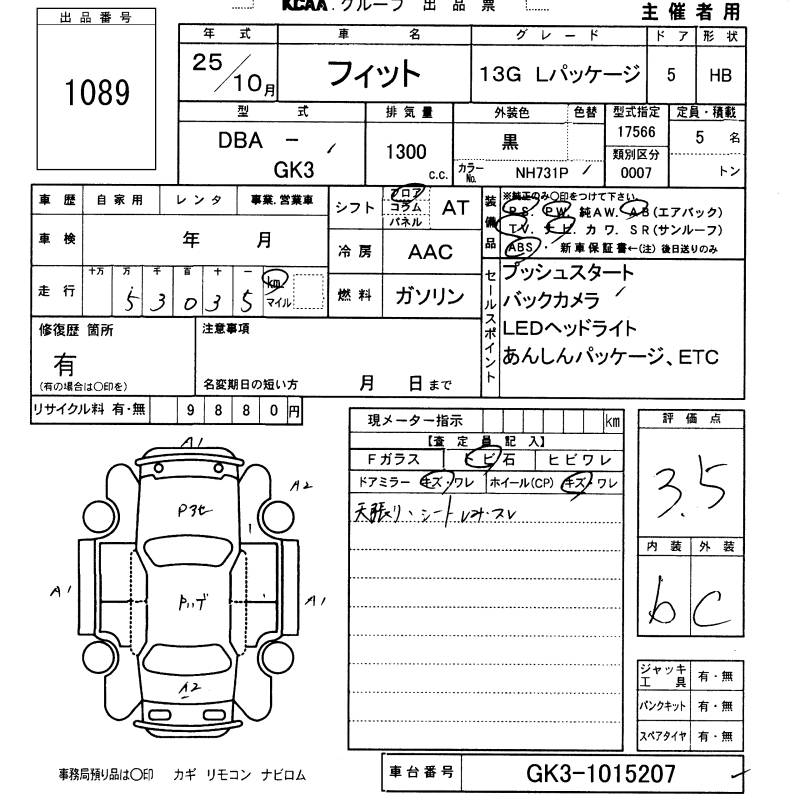 KCAA.グループ 出品票
主催者用
出品番号
1089
年式 車名 グレード ドア 形状
25/10月 フィット 13G Lパッケージ 5 HB
型式 排気量 外装色 色替 型式指定 定員・積載
DBA － GK3 1300 c.c. 黒 17566 5名
カラーNo. NH731P 類別区分 0007 トン
車歴 自家用 レンタ 事業.営業車
車検 年 月
走行 十万 万 千 百 十 一 km. マイル
5 3 0 3 5
シフト フロア コラム パネル AT
冷房 AAC
燃料 ガソリン
装備品 ※純正のみ〇印をつけて下さい
P.S. PW. 純AW. AB(エアバック)
TV. ナビ. カワ. SR(サンルーフ)
ABS. 新車保証書←(注)後日送りのみ
セールスポイント
プッシュスタート
バックカメラ
LEDヘッドライト
あんしんパッケージ、ETC
修復歴 箇所
有
(有の場合は〇印を)
注意事項
名変期日の短い方 月 日まで
リサイクル料 有・無 9880円
現メーター指示 km
【査定員記入】
Fガラス トビ石 ヒビワレ
ドアミラー キズ・ワレ ホイール(CP) キズ・ワレ
天張り、シート
評価点
3.5
内装 外装
b C
ジャッキ工具 有・無
パンクキット 有・無
スペアタイヤ 有・無
A1
A2
A1
A1
A2
事務局預り品は〇印 カギ リモコン ナビロム
車台番号 GK3-1015207